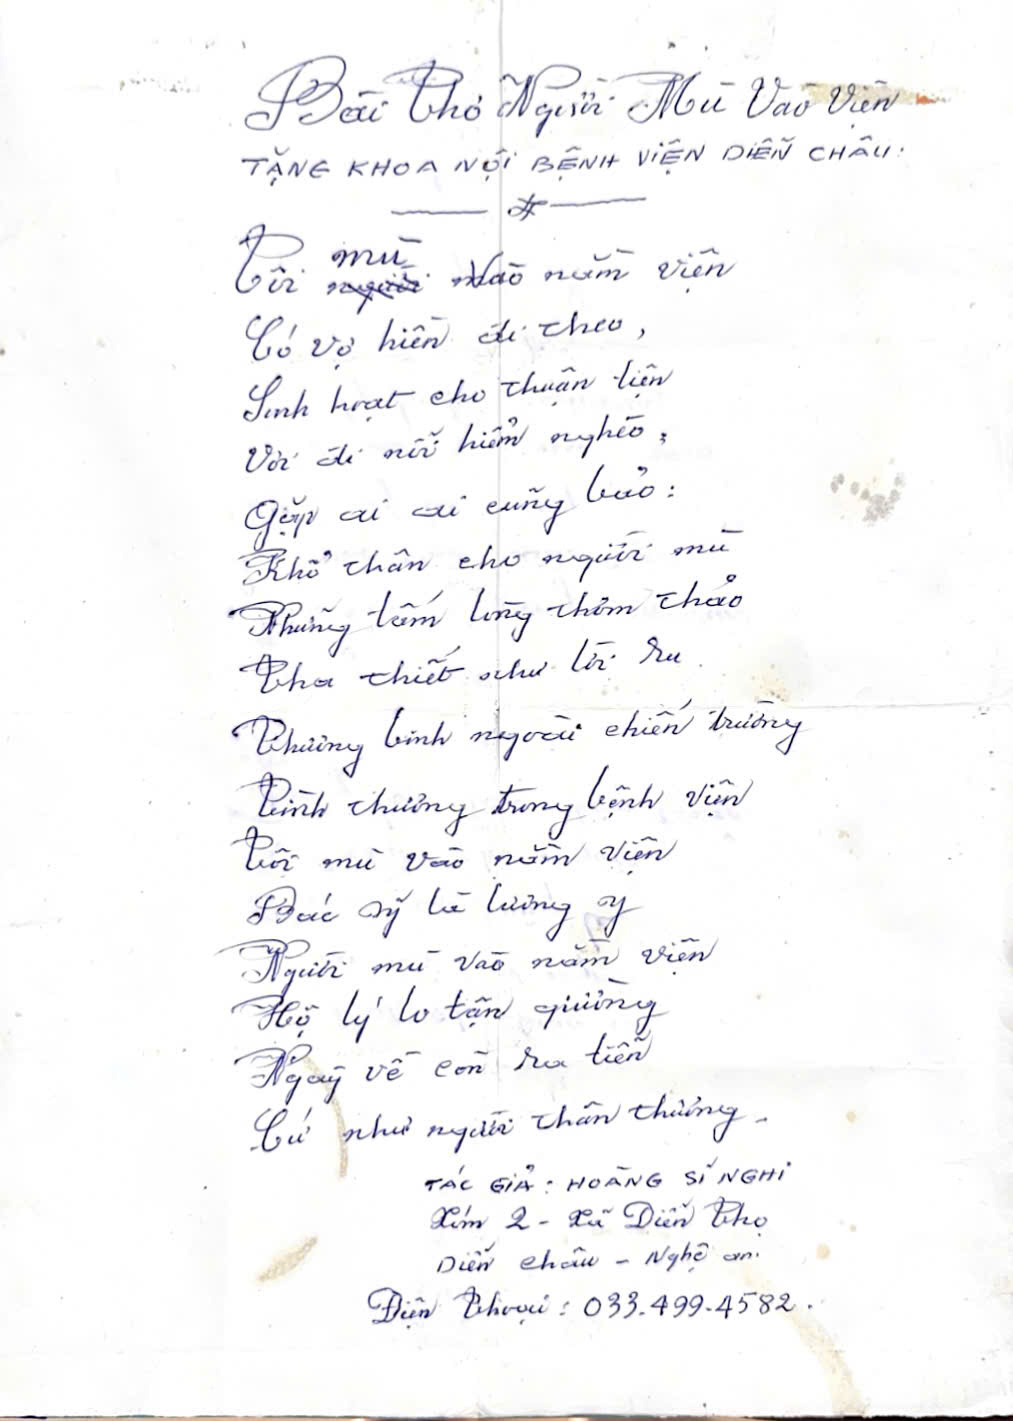 Bài Thơ Người Mù Vào Viện
TẶNG KHOA NỘI BỆNH VIỆN DIỄN CHÂU.
Tôi mù vào nằm viện
Có vợ hiền đi theo,
Sinh hoạt cho thuận tiện
Vơi đi nỗi hiểm nghèo,
Gặp ai ai cũng bảo:
Khổ thân cho người mù
Những tấm lòng thơm thảo
Tha thiết như lời ru
Thương binh ngoài chiến trường
Tình thương trong bệnh viện
Tôi mù vào nằm viện
Bác sỹ là lương y
Người mù vào nằm viện
Hộ lý lo tận giường
Ngày về còn ra tiễn
Cứ như người thân thương.
TÁC GIẢ: HOÀNG SĨ NGHI
Xóm 2 - Xã Diễn Thọ
Diễn Châu - Nghệ an.
Điện thoại: 033.499.4582.